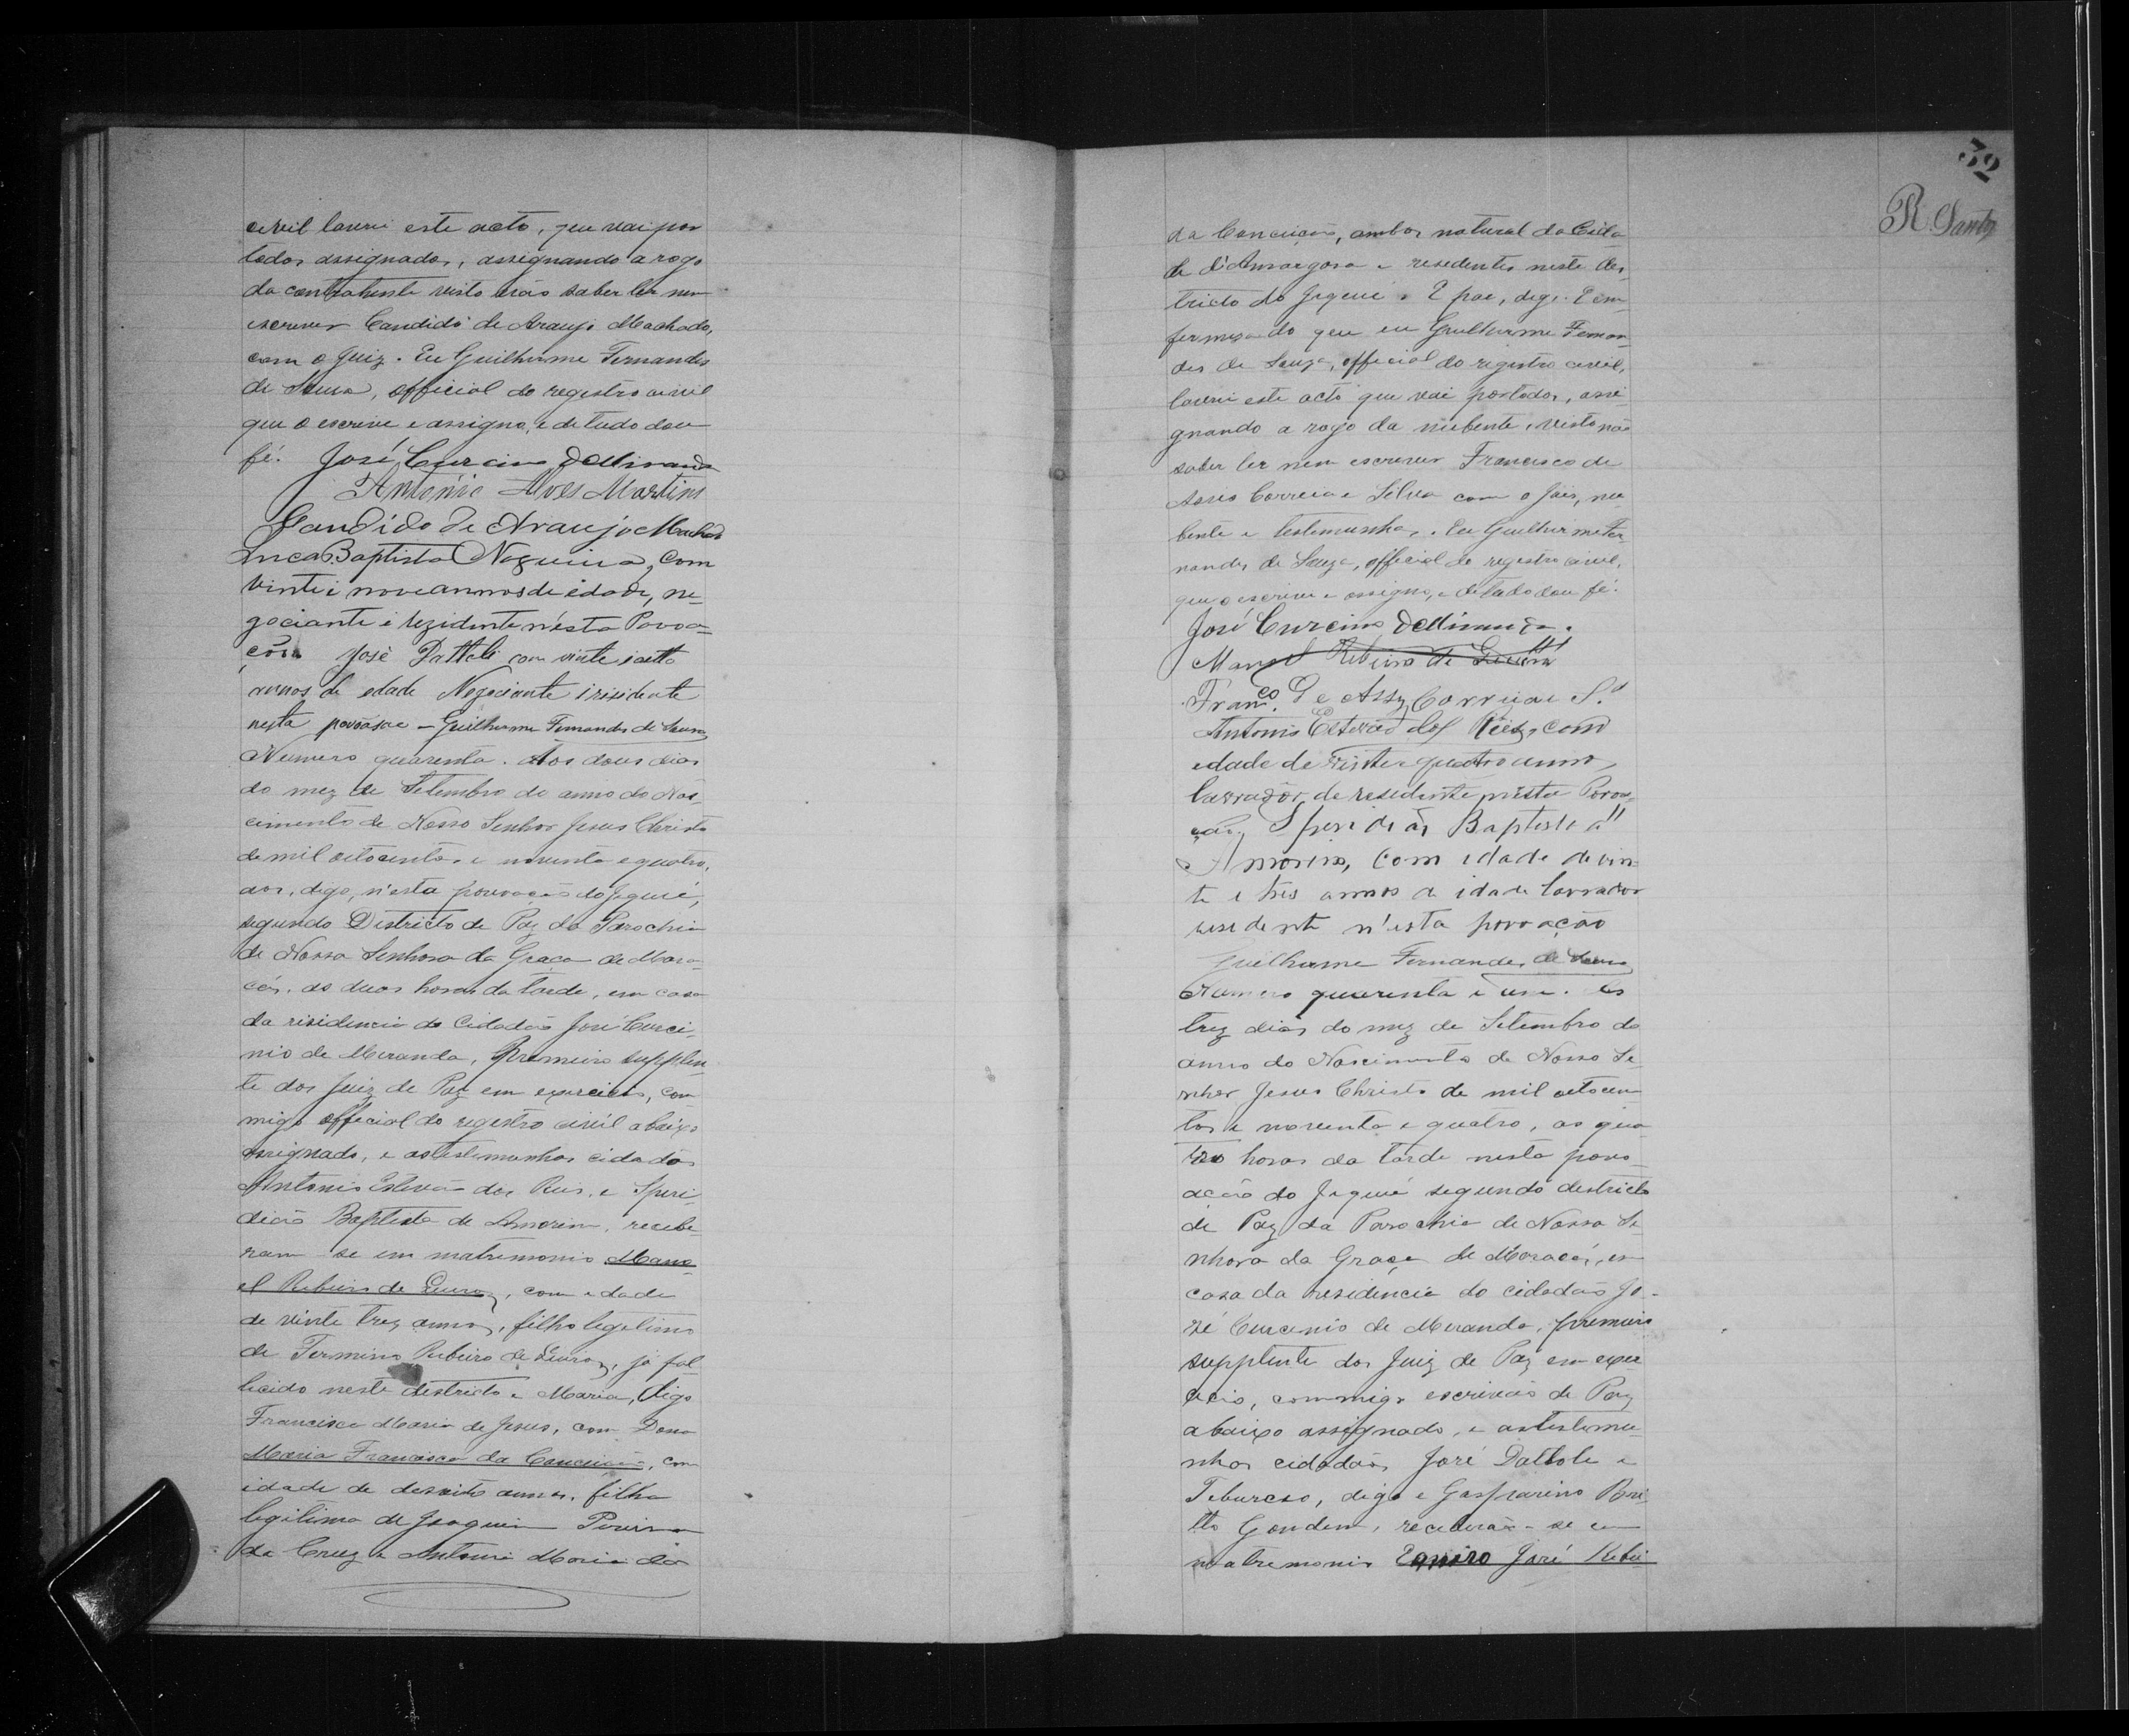 civil lavrei este acto, que vai por
todos assignados, assignando a rogo
da contrahente visto não saber ler nem
escrever Candido de Araujo Machado,
com o Juiz. Eu Guilherme Fernandes
de Sousa, official do registro civil
que o escrevi e assigno, e de tudo dou
fé. José Curcino de Miranda
Antonio Alves Martins
Candido de Araujo Machado
Luca Baptista Nogueira, com
vinte i nove annos de idade, ne-
gociante i rezidente nésta Povoa-
ção. José Dattoli com vinte i oitto
annos de edade Negociante i risidente
nesta povoasae - Guilherme Fernandes de Sousa
Numero quarenta. Aos dous dias
do mez de Setembro do anno do Nas-
cimento de Nosso Senhor Jesus Christo
de mil oitocentos e noventa e quatro,
aos, digo, n'esta povoação do Jequié,
segundo Districto de Paz da Parochia
de Nossa Senhora da Graça de Mara-
cás, as duas horas da tarde, em casa
da risidencia do Cidadão José Curci-
nio de Meranda, Premeiro supplen-
te dos Juiz de Paz em exercicio, com
migo official do registro civil abaixo
assignado, e as testemunhas cidadãos
Antonio Estevão dos Reis, e Speri-
dião Baptista de Amorim, recebe-
ram-se em matrimonio Mano-
el Ribeiro de , com edade
de vinte trez annos, filho legitimo
de Fermino Ribeiro de , já fal-
lecido neste destricto e Maria, digo
Francisca Maria de Jesus, com Dona
Maria Francisca da Conceição, com
idade de desoito annos, filha
legitima de Joaquim Pereira
da Cruz e Antonia Maria da
52
R. Santos
da Conceição, ambos natural da Cida-
de d'Amargosa e residentes neste des-
tricto do Jequié. E pae, digo. E em
fermesa do que eu Guilherme Fernan-
des de Souza, official do registro civil,
lavrei este acto que vai por todos, assi-
gnando a rogo da nubente, visto não
saber ler nem escrever Francisco de
Assis Correia e Silva com o Juis, nu-
bente e testemunhas. Eu Guilherme Fer-
nandes de Souza, official do registro civil,
que o escrevi e assigno, e de tudo dou fé.
José Curcino de Miranda.
Manoel Ribeiro de
Franco. de Assy Correia e Sa
Antonio Estevão dos Reis, com
edade de vinte e quatro anno,
lavrador, de residente nésta Povoa-
ção, Speridião Baptista d'
Amorim, com idade de vin-
te e três annos de idade lavrador
residente n'esta povoação
Guilherme Fernandes de Sousa
Numero quarenta e um. Aos
trez dias do mez de Setembro do
anno do Nascimento de Nosso Se-
nhor Jesus Christo de mil oitocen-
tos e noventa e quatro, as qua-
tro horas da tarde nesta povo-
ação do Jequié segundo destricto
de Paz da Parochia de Nossa Se-
nhora da Graça de Maracás, em
casa da residencia do cidadão Jo-
sé Curcenio de Meranda, premeiro
supplente dos Juiz de Paz em exer-
cicio, commigo escrivão de Paz
abaixo assignado, e as testemu-
nhas cidadãos José Dattole e
Teburcso, digo e Gasparino Bri-
tto Gondem, receberão-se em
matremonio José Ribei-